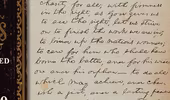 charity for all; with firmness
in the right, as God gives us
to see the right, let us strive
on to finish the work we are
in; to bind up the nation's wounds;
to care for him who shall have
borne the battle, and for his widow,
and his orphan— to do all
which may achieve and cherish
a just, and a lasting peace
ED
O